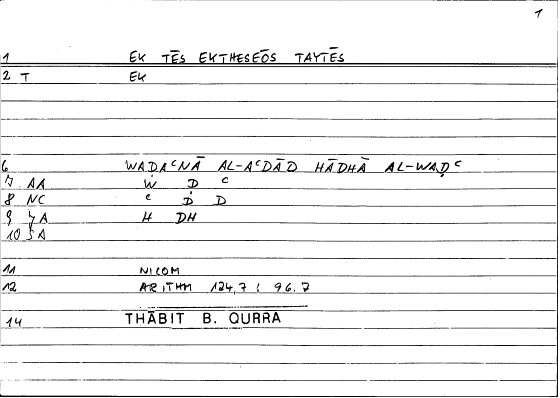 1
1 EK TĒS EKTHESEŌS TAYTĒS
2 T EK
6 WAḌAʿNĀ AL-AʿDĀD HĀDHĀ AL-WAḌʿ
7 AA W Ḍ ʿ
8 NC ʿ D D
9 JA H DH
10 SA
11 NICOM
12 ARITHM 124,7 : 96.7
14 THĀBIT B. QURRA